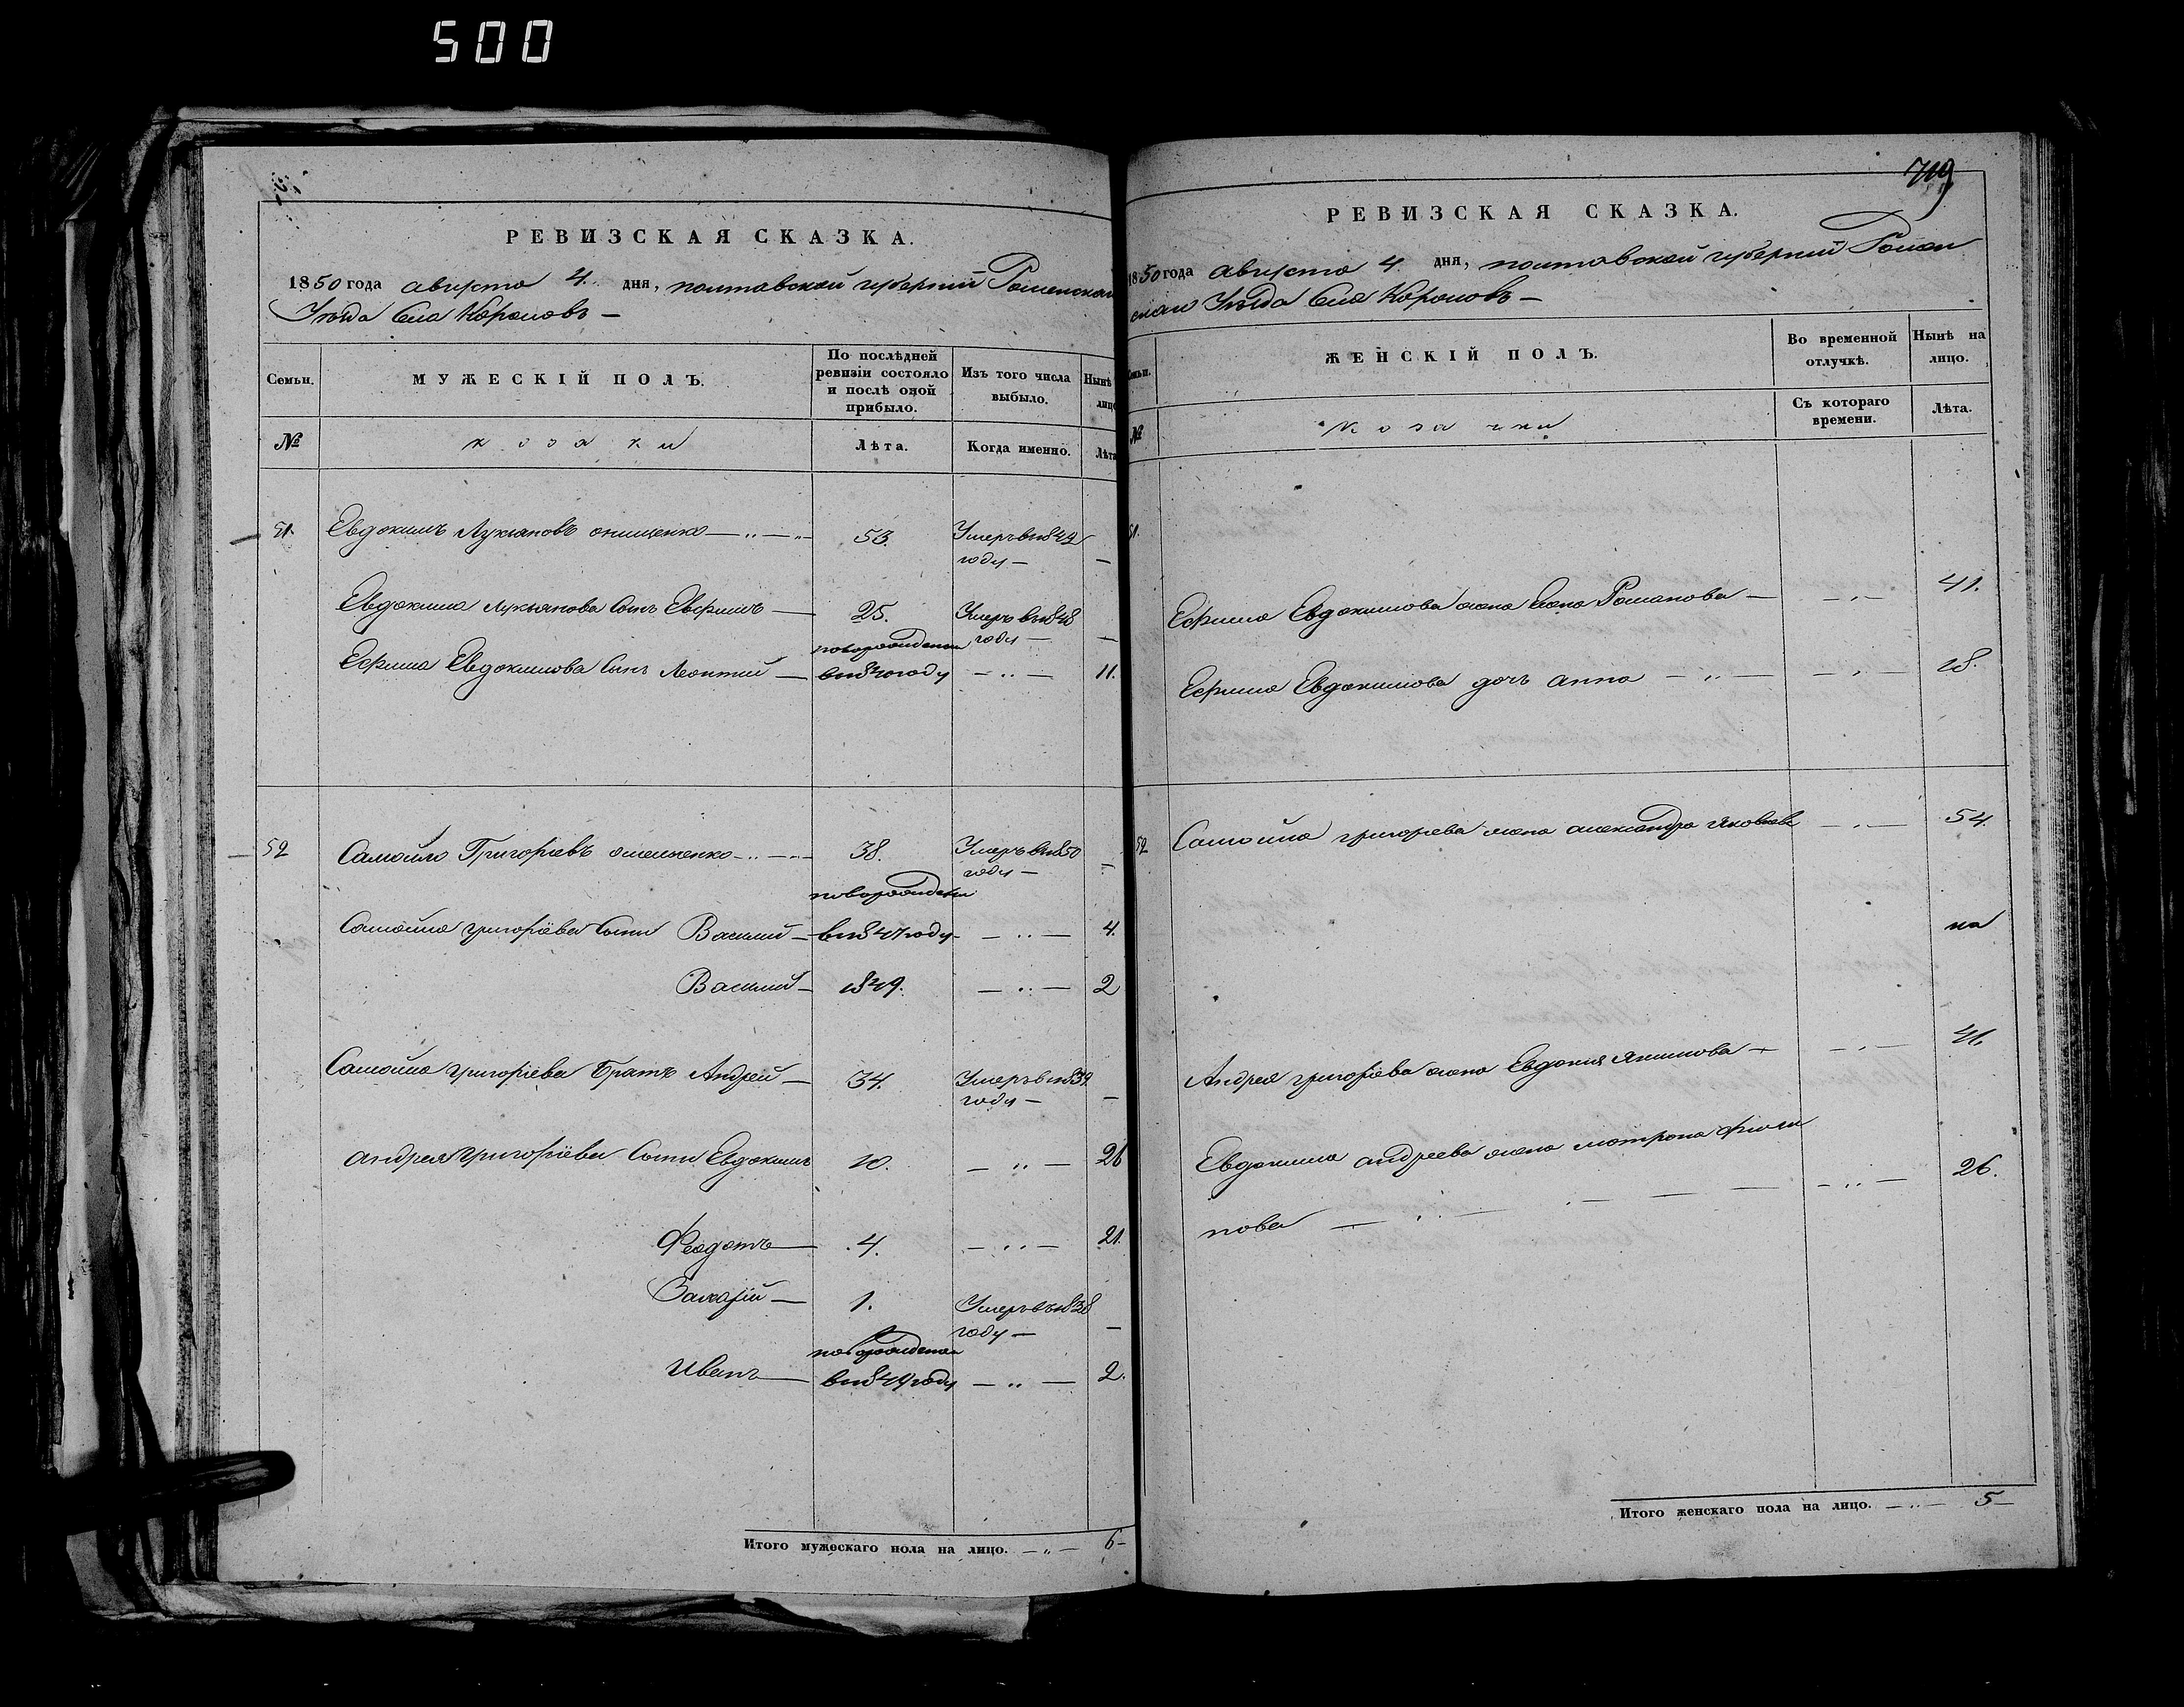 500
РЕВИЗСКАЯ СКАЗКА.
1850 года августа 4. дня, полтавской губернии Роменскаго
Уезда Села Коровов
Семьи.
МУЖЕСКІЙ ПОЛЪ.
По послѣдней ревизіи состояло и послѣ оной прибыло.
Изъ того числа выбыло.
Нынѣ
лицо
№
козаки
Лѣта.
Когда именно.
Лѣта
51. Евдокимъ Лукьяновъ онищенко — 53. Умеръ в 1849
году —
Евдокима Лукьянова Сынъ Ефимъ — 25. Умеръ в 1848
году —
новорожденъ
Ефима Евдокимова Сынъ Леонтий — в 1840 году — 11.
52 Самойло Григорьевъ омельченко — 38. Умеръ в 1850
году —
новорожден
Самойла григориева Сыни Василий — в 1847 году — 4.
Василий — 1849. — 2
Самойла григориева Братъ Андрей — 34. Умеръ в 1839
году —
андрея Григориева Сыни Евдокимъ 10. — 26
Феодотъ — 4. — 21.
Захарій — 1. Умеръ въ 1838
году —
новорожденъ
Иванъ — в 1849 году — 2.
Итого мужескаго пола на лицо. — 6
719
РЕВИЗСКАЯ СКАЗКА.
1850 года августа 4. дня, полтавской губернии Ромен
скаго Уезда Села Коровов —
Семьи.
ЖЕНСКІЙ ПОЛЪ.
Во временной отлучкѣ.
Нынѣ на лицо.
№
козачки
Съ котораго времени.
Лѣта.
51.
Ефима Евдокимова жена Романова — 41.
Ефима Евдокимова дочь анна — 18.
52 Самойла григорьева жена александра Яковлева — 54.
на
Андрея григориева жена Евдокия Якимова — 41.
Евдокима андреева жена мотрона Фили
пова — 26.
Итого женскаго пола на лицо. — 5